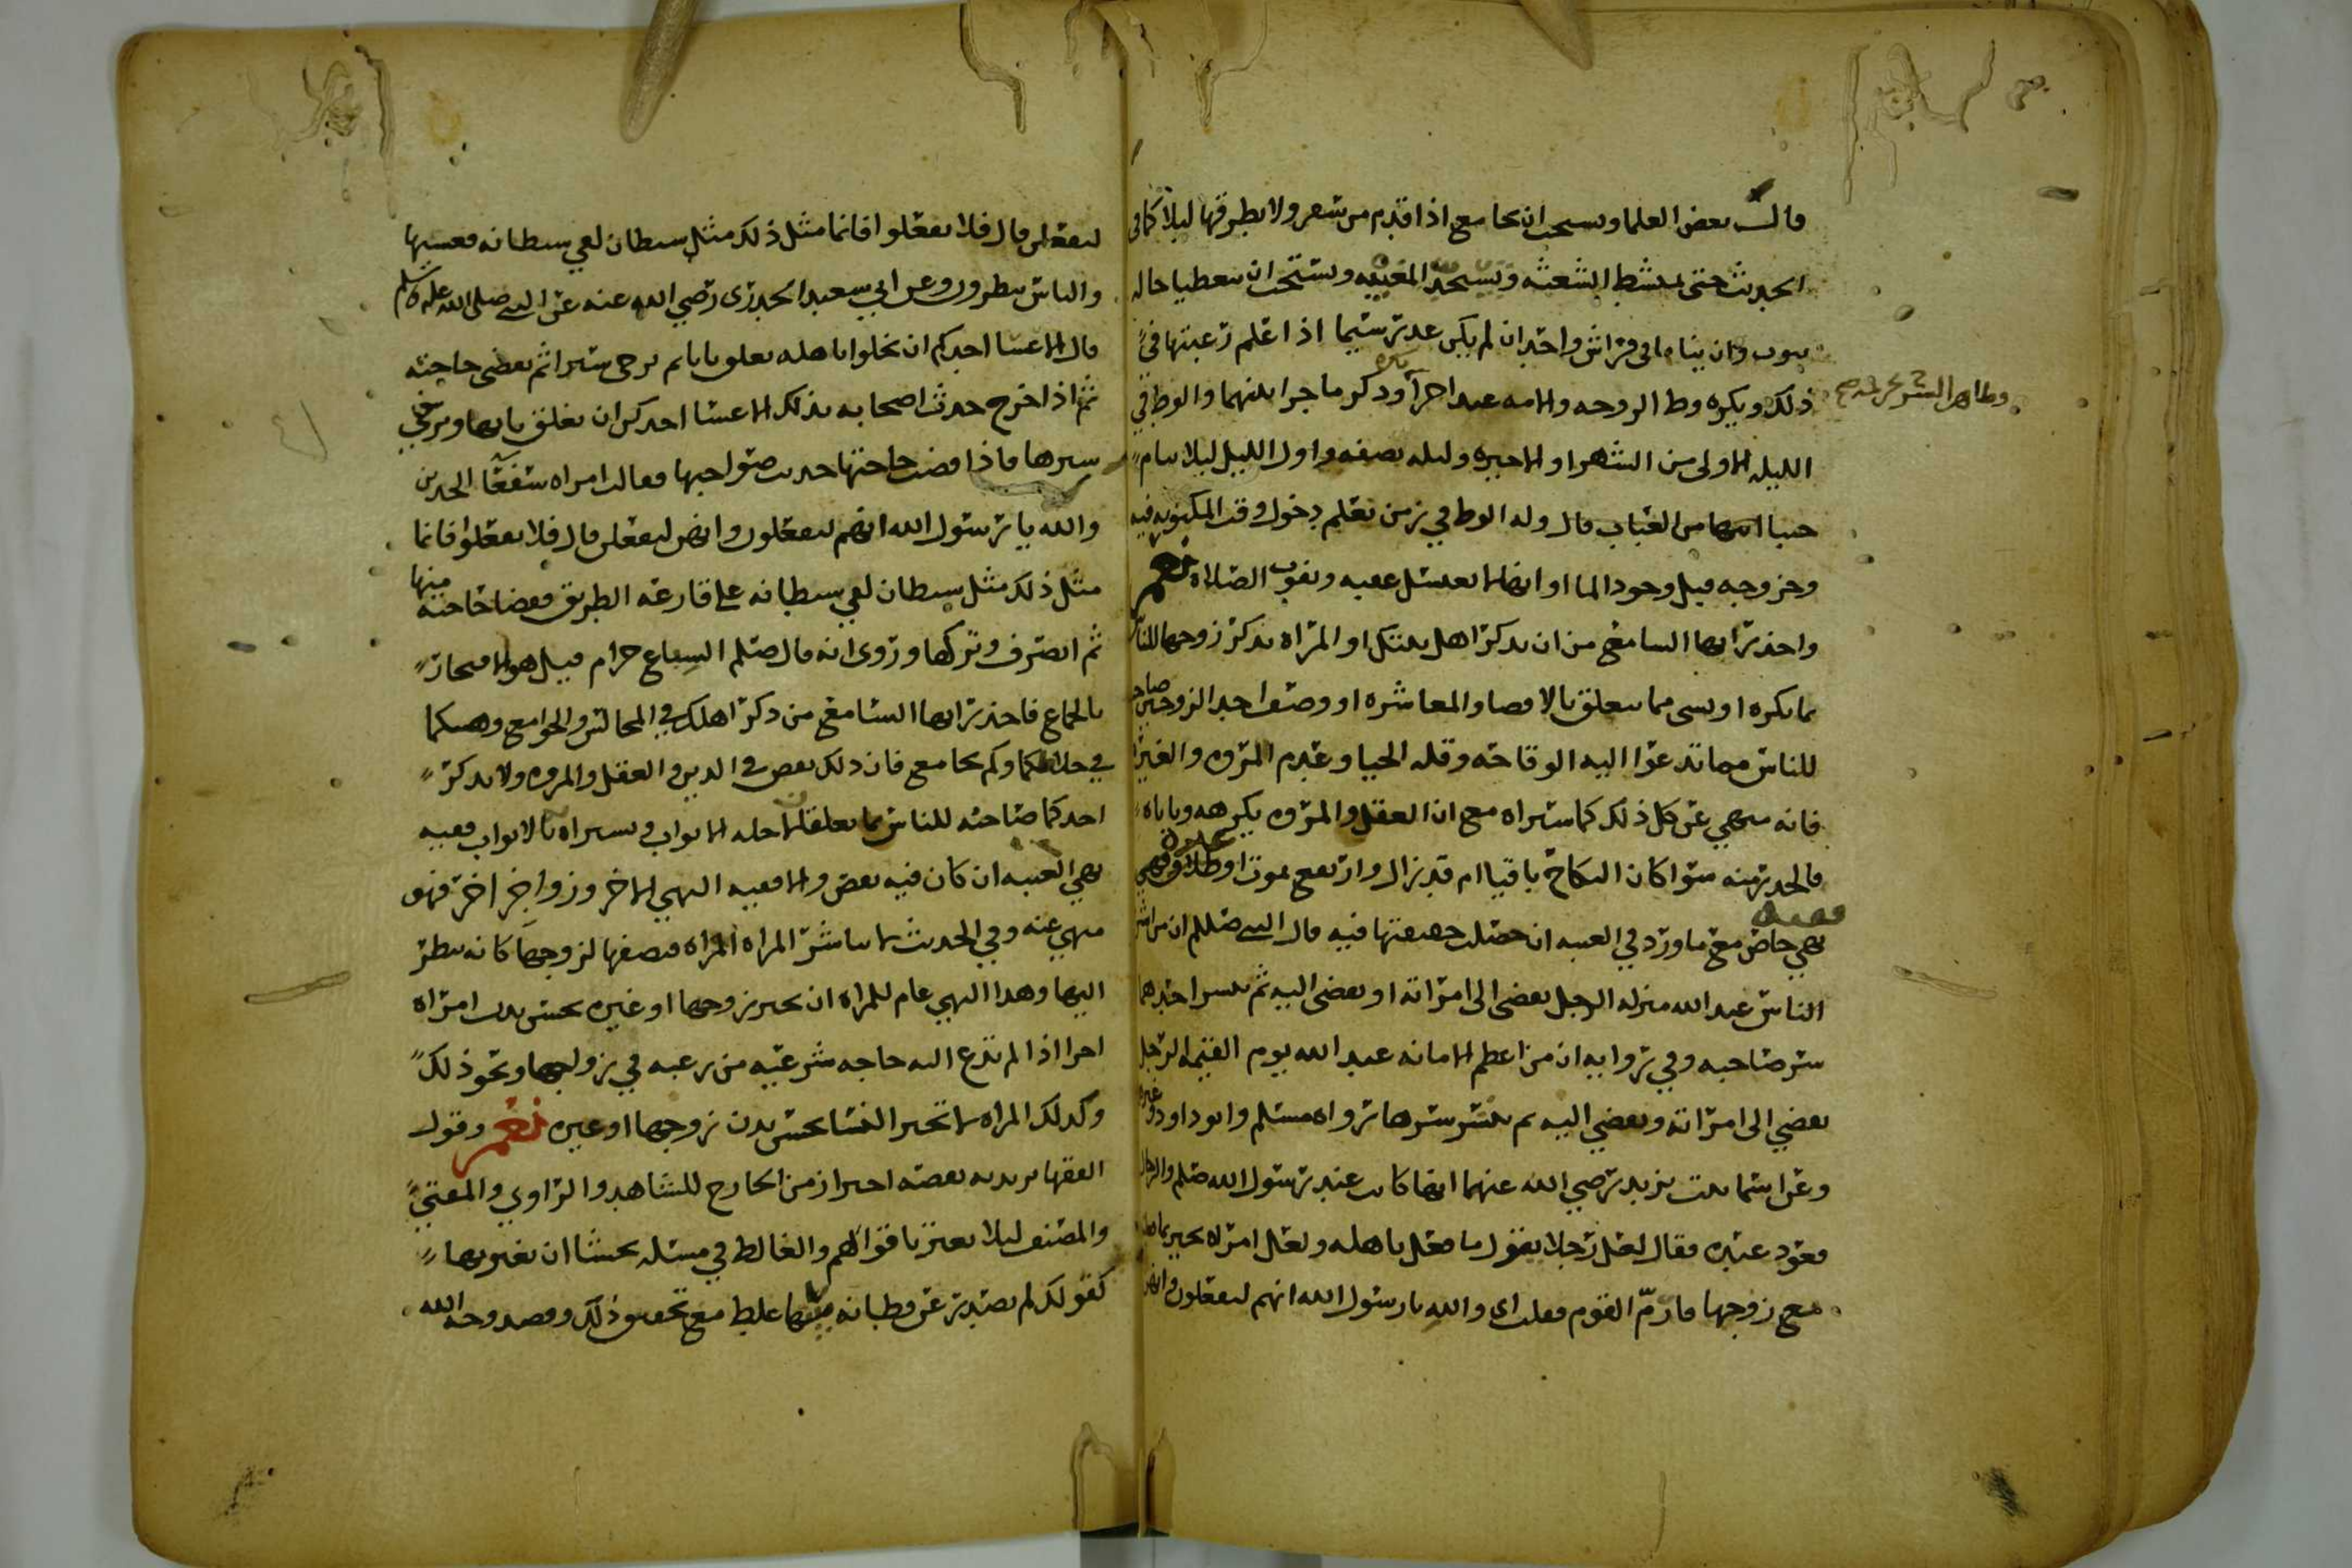 قال بعض العلما ويستحب ان يجامع اذا قدم من سفر ولا يطرقها ليلا كما في
الحديث حتى تمتشط الشعثه وتستحد المغيبه ويستحب ان يتغطيا حاله
بثوب وان يناما في فراش واحد ان لم يكن عذر سيما اذا علم رغبتها في
ذلك ويكره وطء الزوجه والامه عند اخرى وذكر ما جرا بينهما والوطء في
وظاهر السر تحريمه صح
الليله الاولى من الشهر او الاخيره وليله نصفه واول الليل ليلا ينام
جنبا قال وله الوطء في زمن يعلم دخول وقت المكتوبه فيه
وخروجه قبل وجود الما او انها لا تغتسل عقبه وتفوت الصلاه نعم
واحذر ايها السامع من ان تذكر اهل بيتك او المراه تذكر زوجها للناس
بما يكره او بشي مما يتعلق بالافضا والمعاشره او وصف احد الزوجين صاحبه
للناس مما تدعوا اليه الوقاحه وقله الحيا وعدم المروه والغيره
فانه نهي عن كل ذلك كما ستراه مع ان العقل والمروه يكرهه وياباه
فالحذر منه سوا كان النكاح باقيا ام قد زال وارتفع بموت او طلاق
نهي خاص مع ما ورد في الغيبه ان حصلت حقيقتها فيه قال النبي صللم ان من اشر
الناس عند الله منزله الرجل يفضي الى امراته او تفضي اليه ثم ينشر احدهما
سر صاحبه وفي روايه ان من اعظم الامانه عند الله يوم القيمه الرجل
يفضي الى امراته وتفضي اليه ثم ينشر سرها رواه مسلم وابو داود وغيره
وعن اسما بنت يزيد رضي الله عنهما انها كانت عند رسول الله صلم والرجال
قعود عنده فقال لعل رجلا يقول ما فعل باهله ولعل امراه تخبر بما فعلت
مع زوجها فارمّ القوم فقلت اي والله يا رسول الله انهم ليفعلون وانهن
ليفعلن قال فلا تفعلوا فانما مثل ذلك مثل شيطان لقي شيطانه فغشيها
والناس ينظرون وعن ابي سعيد الخدري رضي الله عنه عن النبي صلى الله عليه وسلم
قال الا عسا احدكم ان يخلوا باهله يغلق بابا ثم يرخي سترا ثم يقضي حاجته
ثم اذا خرج حدث اصحابه بذلك الا عسا احدكن ان تغلق بابها وترخي
سترها فاذا قضت حاجتها حدثت صواحبها فقالت امراه سفعا الخدين
والله يا رسول الله انهم ليفعلون وانهن ليفعلن قال فلا تفعلوا فانما
مثل ذلك مثل شيطان لقي شيطانه على قارعه الطريق فقضا حاجته منها
ثم انصرف وتركها وروى انه قال صلم السباع حرام قيل هو الافتخار
بالجماع فاحذر ايها السامع من ذكر اهلك في المجالس والجوامع
في وكم يجامع فان ذلك نقص في الدين والعقل والمروه ولا يذكر
احدكما صاحبه للناس بما يغلقا لاجله الابواب ويستراه بالابواب ففيه
نهي الغيبه ان كان فيه نقص والا ففيه النهي الاخر وزواجر اخر فهو
منهي عنه وفي الحديث لا تباشر المراه المراه فتصفها لزوجها كانه ينظر
اليها وهذا النهي عام للمراه ان تخبر زوجها او غيره بحسن بدن امراه
اخرا اذا لم تدع اليه حاجه شرعيه من رغبه في تزويجها ونحو ذلك
وكذلك المراه لا تخبر النسا بحسن بدن زوجها او غيره نعم وقول
الفقها يريد به بعضه احتراز من الخارج للشاهد والراوي والمفتي
والمصنف ليلا يغتر باقوالهم والغالط في مسئله يخشا ان يغتر بها
كقولك لم يصدر عن فطانه غليظ مع تحقيق ذلك وقصد وجه الله